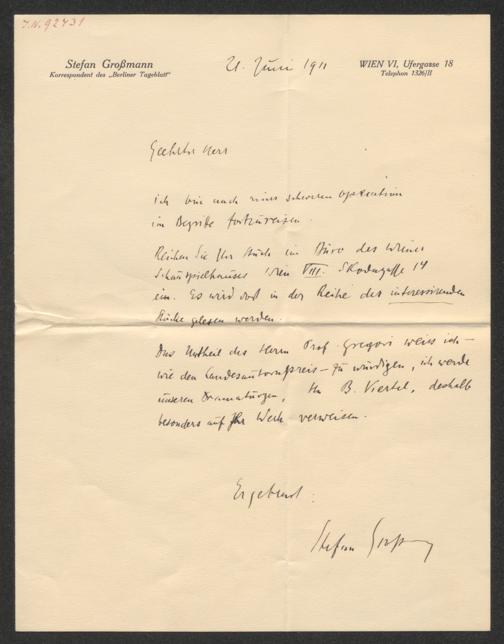 I.N. 92431
Stefan Großmann
Korrespondent des „Berliner Tageblatt"
21. Juni 1911
WIEN VI, Ufergasse 18
Telephon 1326/II
Geehrter Herr
ich bin nach einer schweren Operation
im Begriffe fortzureisen.
Reichen Sie Ihr Stück im Büro des Wiener
Schauspielhauses Wien VIII. Skodagasse 14
ein. Es wird dort in der Reihe der interessirenden
Stücke gelesen werden.
Das Urtheil des Herrn Prof. Gregori weiss ich –
wie den Landesautorenpreis – zu würdigen, ich werde
unseren Dramaturgen, Hn B. Viertel, deshalb
besonders auf Ihr Werk verweisen.
Ergebenst:
Stefan Großmann